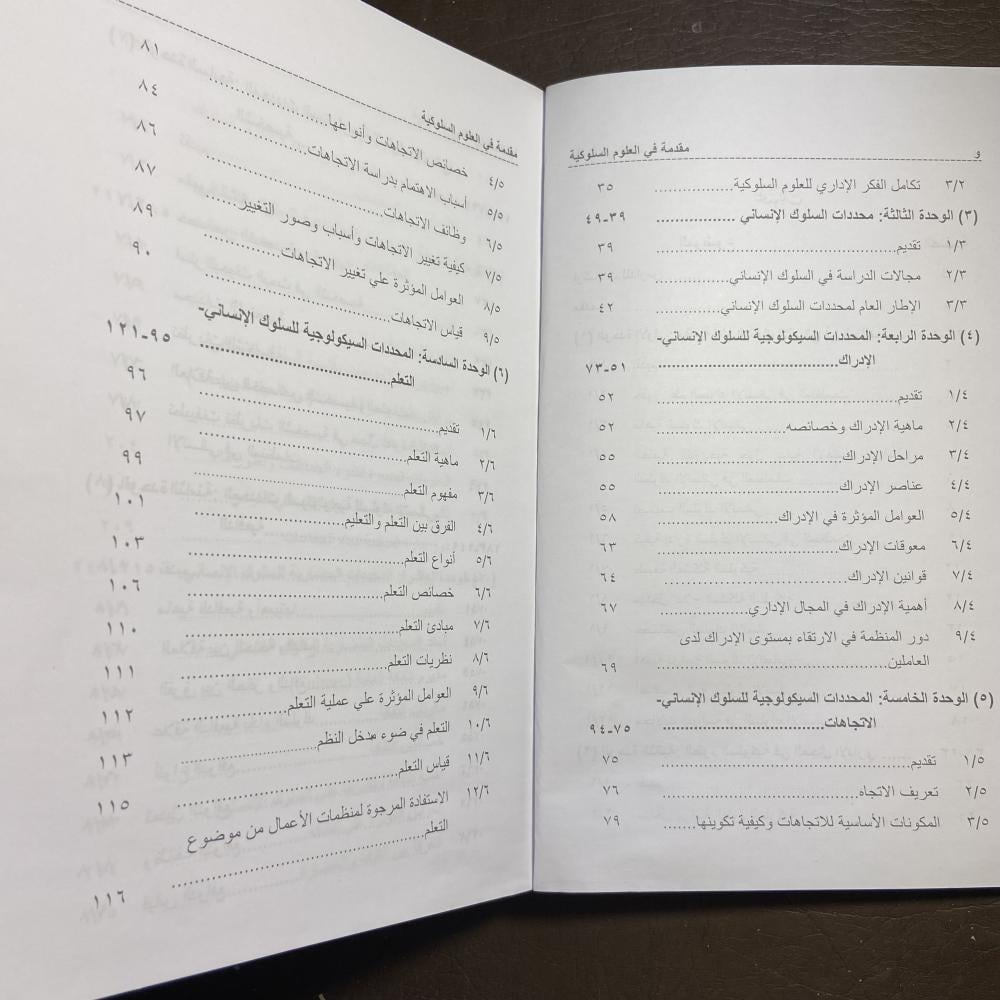 و مقدمة في العلوم السلوكية
٣/٢ تكامل الفكر الإداري للعلوم السلوكية ٣٥
(٣) الوحدة الثالثة: محددات السلوك الإنساني ٣٩-٤٩
١/٣ تقديم ٣٩
٢/٣ مجالات الدراسة في السلوك الإنساني ٣٩
٣/٣ الإطار العام لمحددات السلوك الإنساني ٤٢
(٤) الوحدة الرابعة: المحددات السيكولوجية للسلوك الإنساني-
الإدراك ٥١-٧٣
١/٤ تقديم ٥٢
٢/٤ ماهية الإدراك وخصائصه ٥٢
٣/٤ مراحل الإدراك ٥٥
٤/٤ عناصر الإدراك ٥٥
٥/٤ العوامل المؤثرة في الإدراك ٥٨
٦/٤ معوقات الإدراك ٦٣
٧/٤ قوانين الإدراك ٦٤
٨/٤ أهمية الإدراك في المجال الإداري ٦٧
٩/٤ دور المنظمة في الارتقاء بمستوى الإدراك لدى
العاملين ٦٩
(٥) الوحدة الخامسة: المحددات السيكولوجية للسلوك الإنساني-
الاتجاهات ٧٥-٩٤
١/٥ تقديم ٧٥
٢/٥ تعريف الاتجاه ٧٦
٣/٥ المكونات الأساسية للاتجاهات وكيفية تكوينها ٧٩
مقدمة في العلوم السلوكية
٤/٥ خصائص الاتجاهات وأنواعها ٨١
٥/٥ أسباب الاهتمام بدراسة الاتجاهات ٨٤
٦/٥ وظائف الاتجاهات ٨٦
٧/٥ كيفية تغيير الاتجاهات وأسباب وصور التغيير ٨٧
٨/٥ العوامل المؤثرة علي تغيير الاتجاهات ٨٩
٩/٥ قياس الاتجاهات ٩٠
(٦) الوحدة السادسة: المحددات السيكولوجية للسلوك الإنساني-
التعلم ٩٥-١٢١
١/٦ تقديم ٩٦
٢/٦ ماهية التعلم ٩٧
٣/٦ مفهوم التعلم ٩٩
٤/٦ الفرق بين التعلم والتعليم ١٠١
٥/٦ أنواع التعلم ١٠٣
٦/٦ خصائص التعلم ١٠٦
٧/٦ مبادئ التعلم ١١٠
٨/٦ نظريات التعلم ١١١
٩/٦ العوامل المؤثرة علي عملية التعلم ١١٢
١٠/٦ التعلم في ضوء مدخل النظم ١١٣
١١/٦ قياس التعلم ١١٥
١٢/٦ الاستفادة المرجوة لمنظمات الأعمال من موضوع
التعلم ١١٦